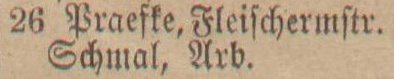 26 Praefke, Fleiſchermſtr.
Schmal, Arb.